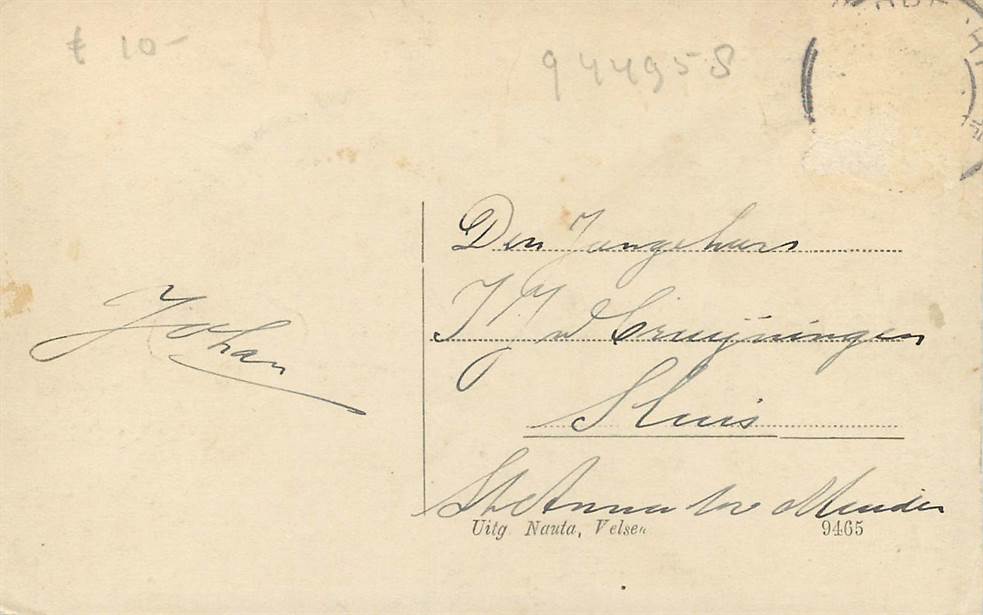 € 10-
944958
Johan
Den Jongeheer
J J v Cruijningen
Sluis
St Anna ter Muiden
Uitg. Nauta, Velsen 9465